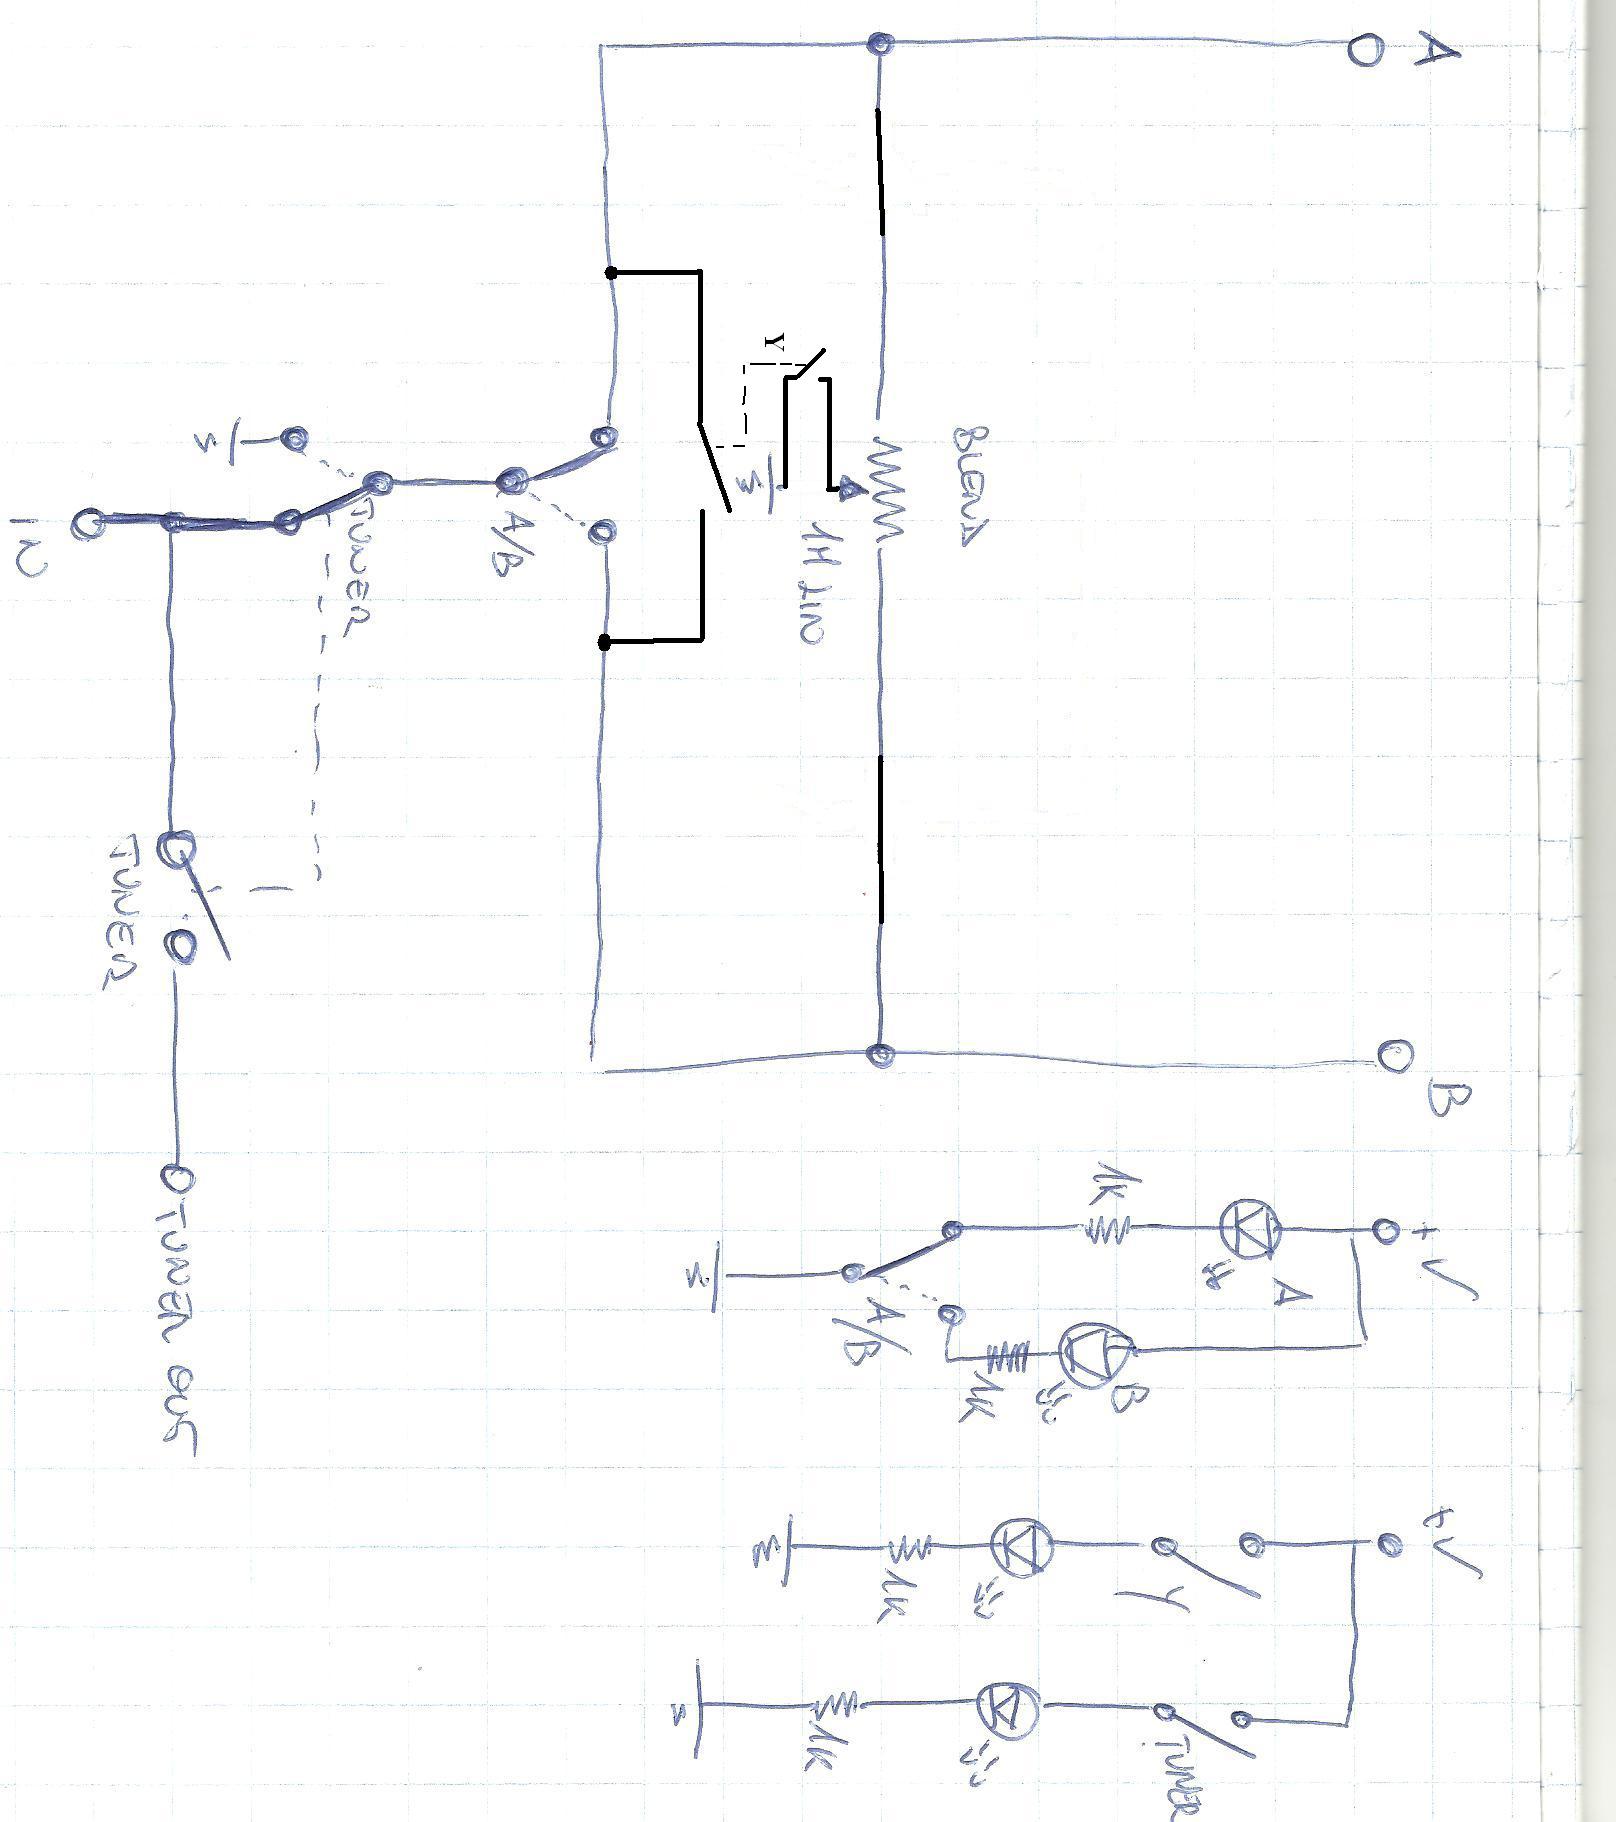 A
B
+V
+V
A
TUNER
Y
B
1K
BLEND
1K
1K
A/B
1K
1M LIN
Y
A/B
TUNER
TUNER OUT
TUNER
IN